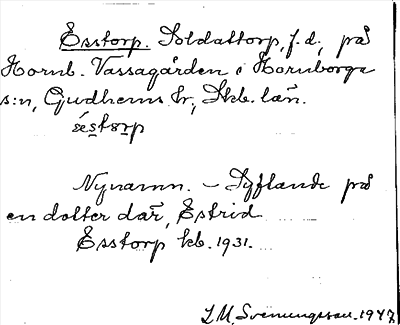 Esstorp. Soldattorp, f.d., på
Hornb. Vassagården i Hornborga
s:n, Gudhems hr, Skb. län.
ɛ́stɔrp
Nynamn. – Syftande på
en dotter där, Estrid
Esstorp kb. 1931.
L.M. Svenungsson. 1947